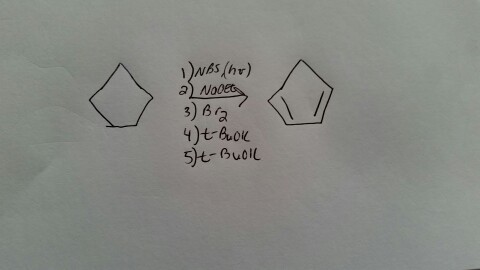 1) NBS (hν)
2) NaOEt
3) Br2
4) t-BuOK
5) t-BuOK